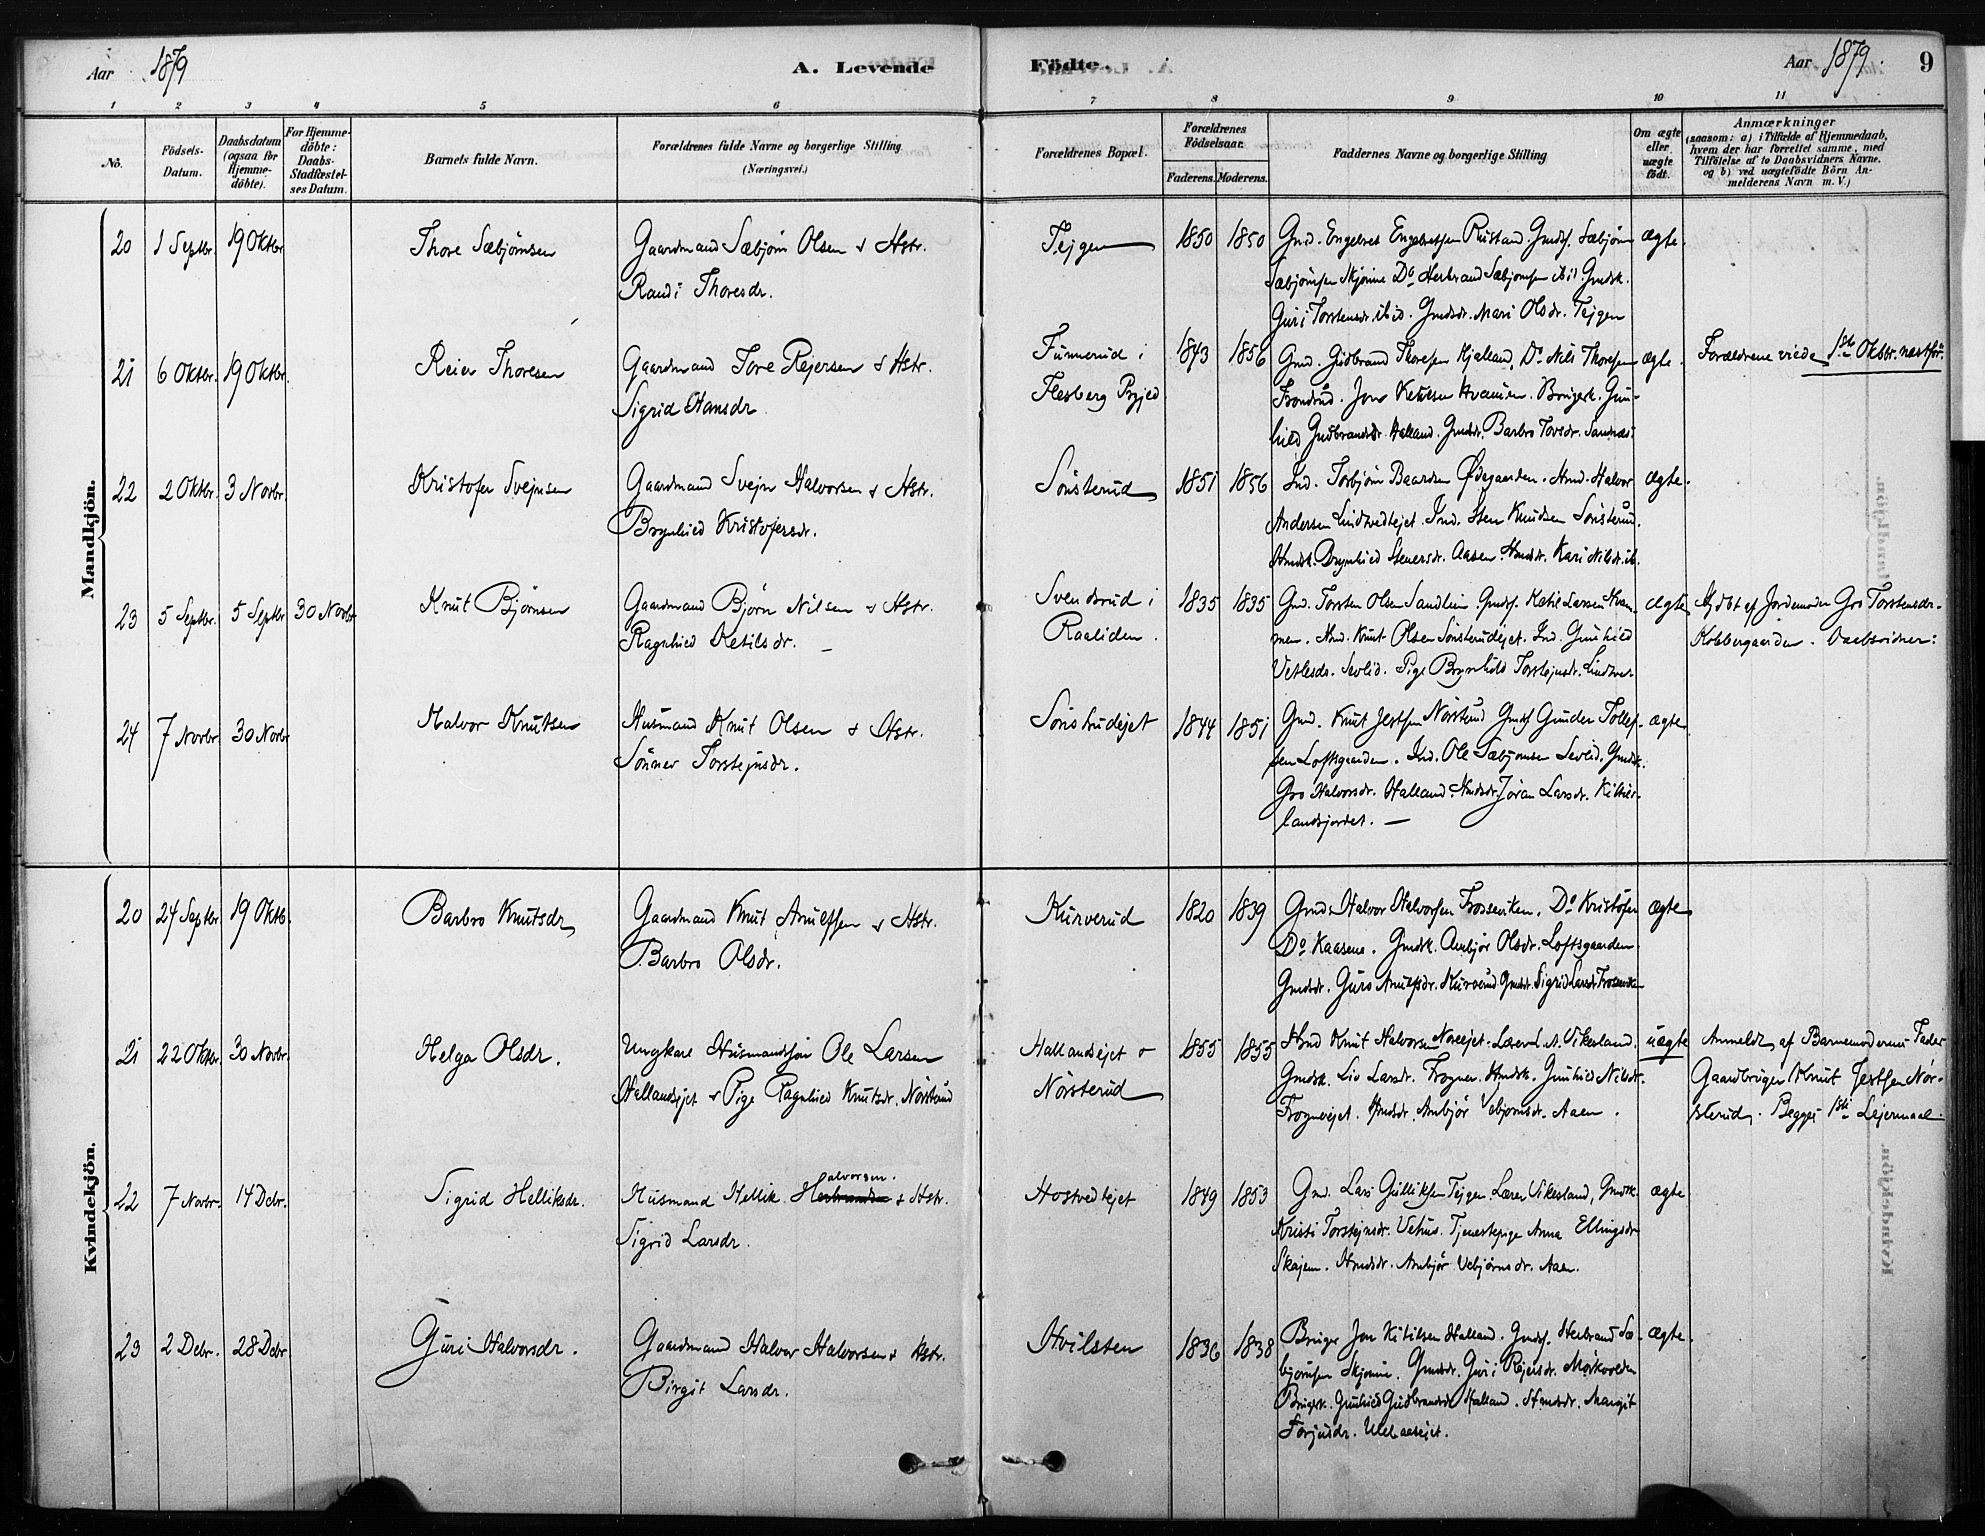 Aar 1879
A. Levende
Födte.
Aar 1879.
9
1 2 3 4 5 6 7 8 9 10 11
No.
Födsels-Datum.
Daabsdatum (ogsaa for Hjemme-döbte).
For Hjemme-döbte: Daabs-Stadfæstel-ses Datum.
Barnets fulde Navn.
Forældrenes fulde Navne og borgerlige Stilling
(Næringsvei.)
Forældrenes Bopæl.
Forældrenes Födselsaar.
Faderens. Moderens.
Faddernes Navne og borgerlige Stilling
Om ægte eller uægte födt.
Anmærkninger
(saasom: a) i Tilfælde af Hjemmedaab,
hvem der har forrettet samme, med
Tilföielse af to Daabsvidners Navne.
og b) ved uægtefödte Börn An-
melderens Navn m. V.)
Mandkjön.
20 1 Septbr. 19 Oktbr Thore Sæbjørnsen
Gaardmand Sæbjørn Olsen & Hstr.
Randi Thoresdr.
Tejgen 1850 1850
Gmd. Engebret Engebretsen Rustand. Gmdsf. Sæbjørn
Sæbjørnsen Skjønne Do Herbrand Sæbjørnsen ibid. Gmdsk.
Guri Torstensdr. ibid. Gmdsdr. Mari Olsdr. Tejgen
ægte.
21 6 Oktbr. 19 Oktbr. Reier Thoresen
Gaardmand Tore Rejersen & Hstr.
Sigrid Hansdr.
Funnerud i
Flesberg Prgjed
1843 1856
Gmd. Gudbrand Thoresen Hjalland, Do Nils Thoresen
Jon Ketilsen Brugerk. Gun-
hild Gudbrandsdr. Halland. Gmdsdr. Barbro Toresdr.
ægte.
Forældrene viede 1ste Oktbr. næstfør.
22 2 Oktbr. 3 Novbr. Kristofer Svejnsen
Gaardmand Svejn Halvorsen & Hstr.
Brynhild Kristofersdr.
Sønsterud 1851 1856
Ind. Torbjørn Baardsen Ødegaarden. Hmd. Halvor
Andersen Lindtvedtejet. Ind. Sten Knudsen Sønsterud.
Hmdsk. Brynhild Stenersdr. Aasen. Hmdsdr. Kari Nilsdr. ib.
ægte.
23 5 Septbr. 5 Septbr 30 Novbr Knut Bjørnsen
Gaardmand Bjørn Nilsen & Hstr.
Ragnhild Ketilsdr.
Svendsrud i
Raaliden.
1835 1835
Gmd. Torsten Olsen Sandlien. Gmdsf. Ketil Larsen Kvam-
men. Hmd. Knut Olsen Sønsterudejet. Ind. Gunhild
Vetlesdr. Sevlid. Pige Brynhild Torstejnsdr.
ægte
Hjdbt af Jordemoder Gro Torstensdr.
Kobbergaarden. Daabsvidner:
24 7 Novbr 30 Novbr Halvor Knutsen
Husmand Knut Olsen & Hstr.
Sønnev Torstejnsdr.
Sønstrudejet 1844 1851
Gmd. Knut Jertsen Nørsterud Gmdsf Gunder Tollef-
sen Loftsgaarden. Ind. Ole Sæbjørnsen Sevlid. Gmdsk.
Gro Halvorsdr. Halland. Hmdsdr. Jøran Larsdr. Kitils-
landsjordet.
ægte
Kvindekjön.
20 24 Septbr 19 Oktb. Barbro Knutsdr
Gaardmand Knut Arnulfsen & Hstr.
Barbro Olsdr.
Kurverud 1820 1839
Gmd. Halvor Halvorsen Frosseviken. Do Kristofer
Do Kaasene. Gmdsk. Anbjør Olsdr. Loftsgaarden.
Gmdsdr. Guro Arnulfsdr. Kurverud Gmdsdr. Sigrid Larsdr.
ægte
21 22 Oktbr. 30 Novbr. Helga Olsdr.
Ungkarl Husmandssøn Ole Larsen
Hallandsejet & Pige Ragnhild Knutsdr. Nørsterud
Hallandsejet &
Nørsterud
1855 1855
Hmd Knut Halvorsen Noreejet. Lærer L. A. Vikesland.
Gmdsk. Liv Larsdr. Frogner. Hmdsk. Gunhild Nilsdr.
Frognerejet. Hmdsdr. Anbjør Vebjørnsdr. Aaen.
uægte
Anmeldt af Barnemoderens Fader
Gaardbruger Knut Jertsen Nør-
sterud. Begges 1ste Lejermaal.
22 7 Novbr. 14 Debr. Sigrid Helliksdr.
Husmand Hellik Halvorsen. & Hstr.
Sigrid Larsdr.
Hostvedtejet 1849 1853
Gmd. Lars Gulliksen Tejgen. Lærer Vikesland, Gmdsk.
Kristi Torstejnsdr. Vehus. Tjenestepige Anna Ellingsdr
Skajem. Hmdsdr. Anbjør Vebjørnsdr. Aaen.
ægte
23 2 Debr. 28 Debr Guri Halvorsdr.
Gaardmand Halvor Halvorsen & Hstr.
Birgit Larsdr.
Hvilsten 1836 1838
Bruger Jon Kitilsen Halland. Gmdsf. Herbrand Sæ-
bjørnsen Skjønne. Gmdsdr. Guri Rejersdr. Mørkvolden
Brugerk. Gunhild Gudbrandsdr Halland. Hmdsdr. Margit
Torjusdr.
ægte.